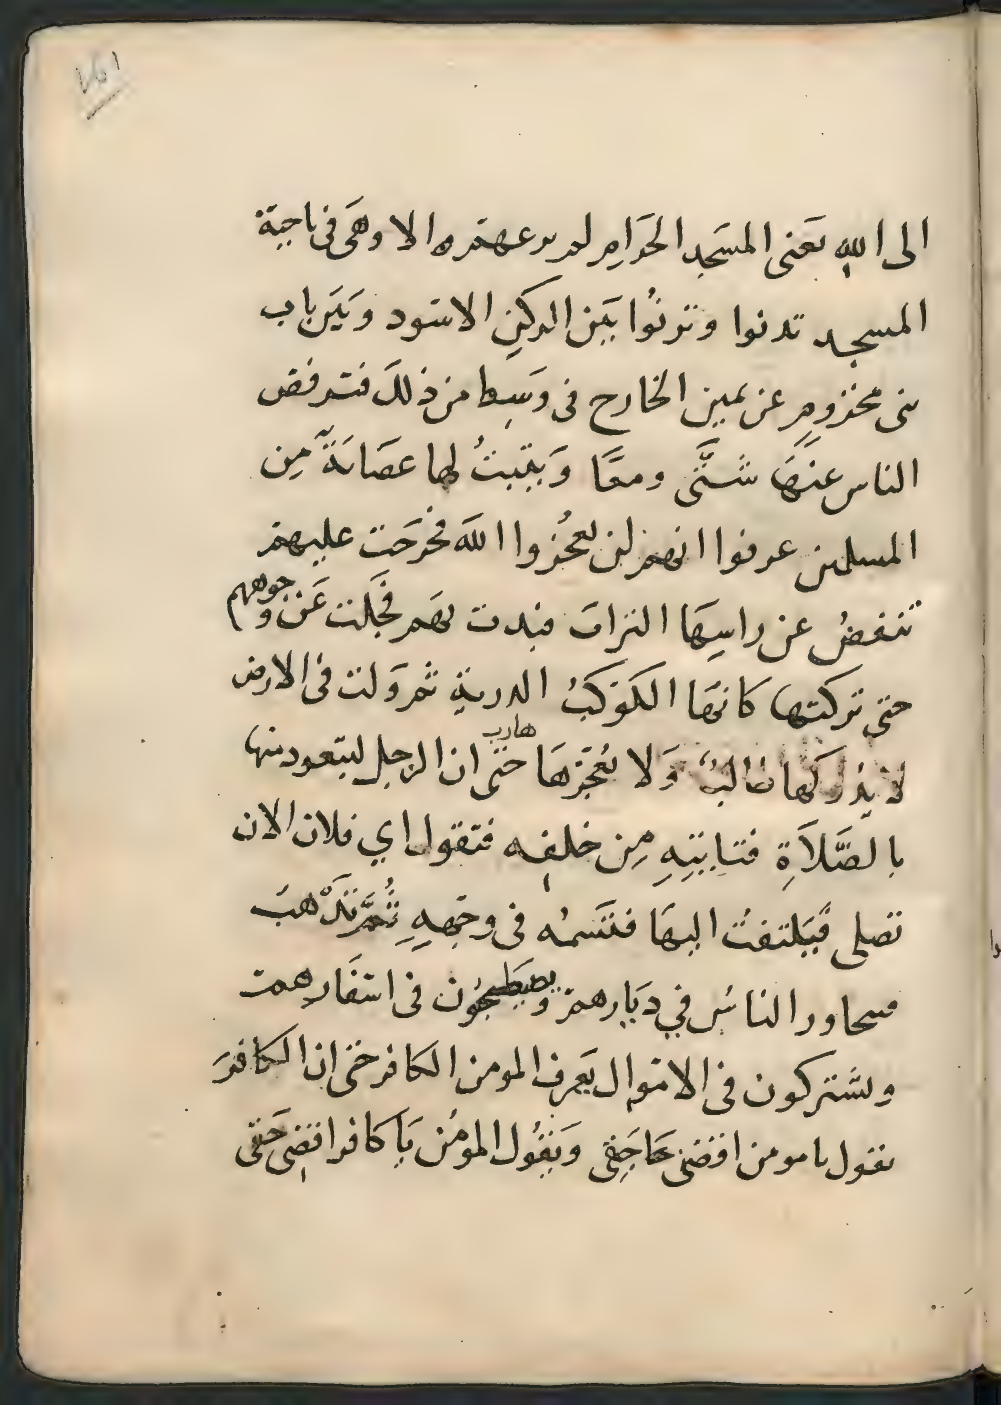 الى الله يعنى المسجد الحرام لم يرعهم الا وهى فى ناحية
المسجد تدنوا وتربوا بين الركن الاسود وبين باب
بنى مخزوم عن يمين الخارج فى وسط من ذلك فترفض
الناس عنها شتى ومعا ويثبت لها عصابة من
المسلمين عرفوا انهم لن يعجزوا الله فخرجت عليهم
تنفض عن راسها التراب فبدت بهم فجلت عن وجوههم
حتى تركتها كانها الكوكب الدرية ثم ولت فى الارض
لا يدركها طالب ولا يعجزها هارب حتى ان الرجل ليتعوذ منها
بالصلاة فتاتيه من خلفه فتقول اي فلان الان
تصلى فيلتفت اليها فتسمه فى وجهه ثم تذهب
فيتجاور الناس في ديارهم ويصطحبون فى اسفارهم
ويشتركون فى الاموال يعرف المومن الكافر حتى ان الكافر
يقول يا مومن اقضنى حاجتى ويقول المومن يا كافر اقضى حقى